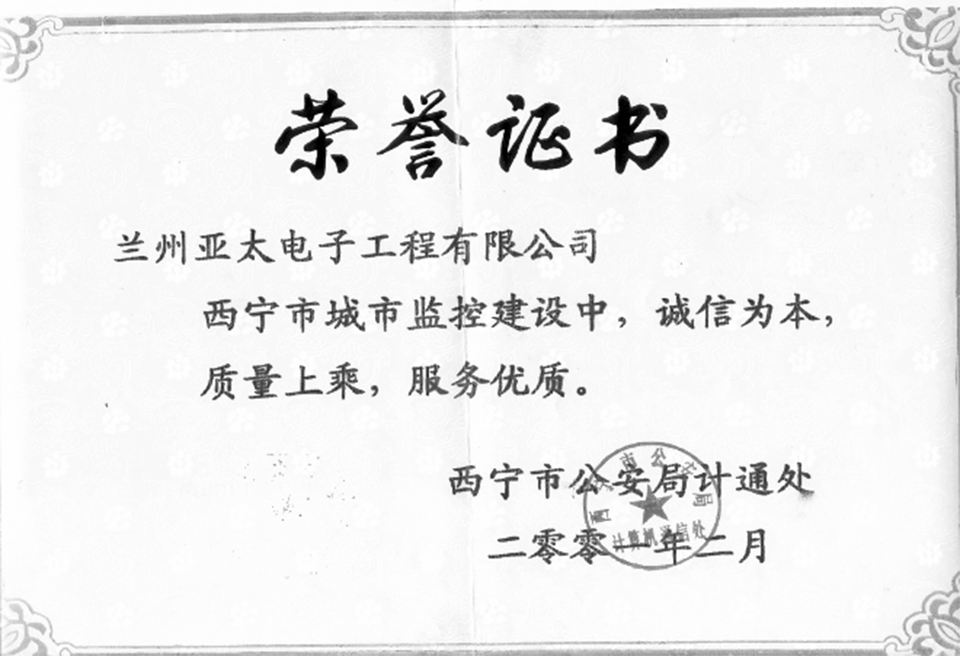 荣誉证书
兰州亚太电子工程有限公司
西宁市城市监控建设中，诚信为本，
质量上乘，服务优质。
西宁市公安局计通处
二零零一年二月
计算机通信处